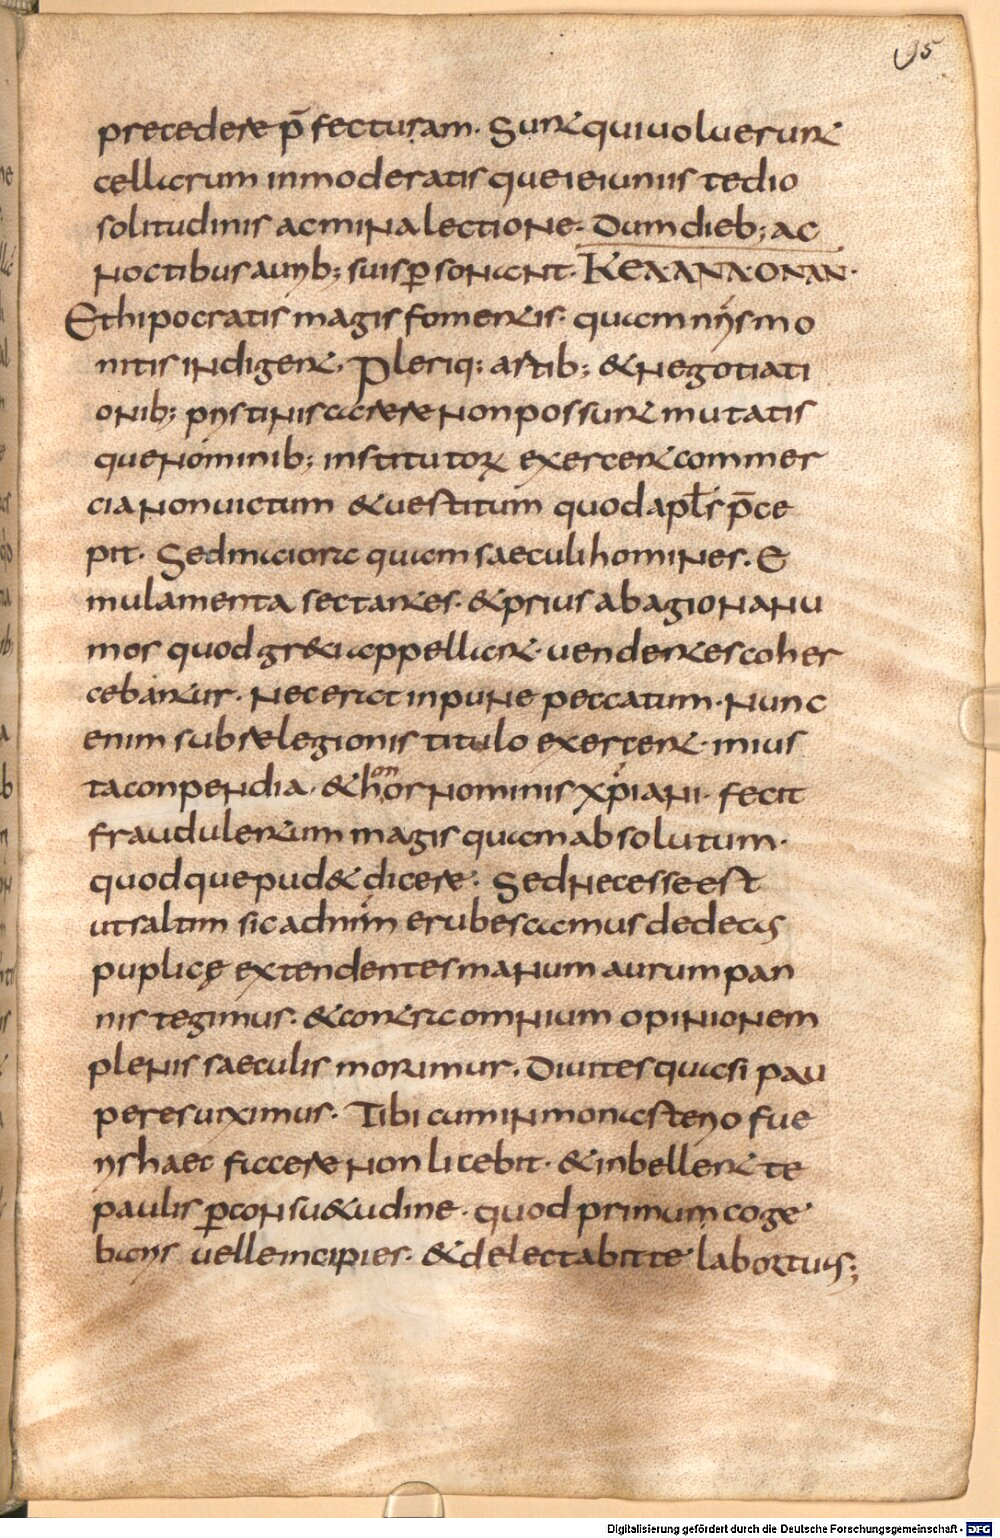 95
precedere p̄fecturam. Sunt qui uoluerunt
cellarum inmoderatis que ieiuniis tedio
solitudinis ac minia lectione. Dum dieb; ac
noctibus aurib; suis p̱sonant. KEXANXONAN.
Et hipocratis magis fomentis. quam nr̄is mo
nitis indigent. Pleriq; artib; & negotiati
onib; pristinis carere non possunt mutatis
que nominib; institutorꝝ exercent commer
cia non uictum & uestitum quod apl̄s p̄ce
pit. Sed maiora quam saeculi homines. E
mulamenta sectantes. & prius ab agionanu
mos quod greci appellant. uendentes coher
cebantur. Nec erat inpune peccatum. Nunc
enim sub relegionis titulo exercent. inius
ta conpendia. & honor nominis xp̄iani. fecit
fraudulentum magis quam absolutum.
quodque pud& dicere. Sed necesse est
ut saltim sic ad nr̄m erubescamus dedecus
puplicę extendentes manum aurum pan
nis tegimus. & contra omnium opinionem
plenis saeculis morimur. Diuites quasi pau
peres uiximus. Tibi cum in monasterio fue
ris haec facere non licebit. & inbellent te
paulis p̱ consu&udine. quod primum coge
baris uelle incipies. & delectabit te labor tuus;
Digitalisierung gefördert durch die Deutsche Forschungsgemeinschaft - DFG